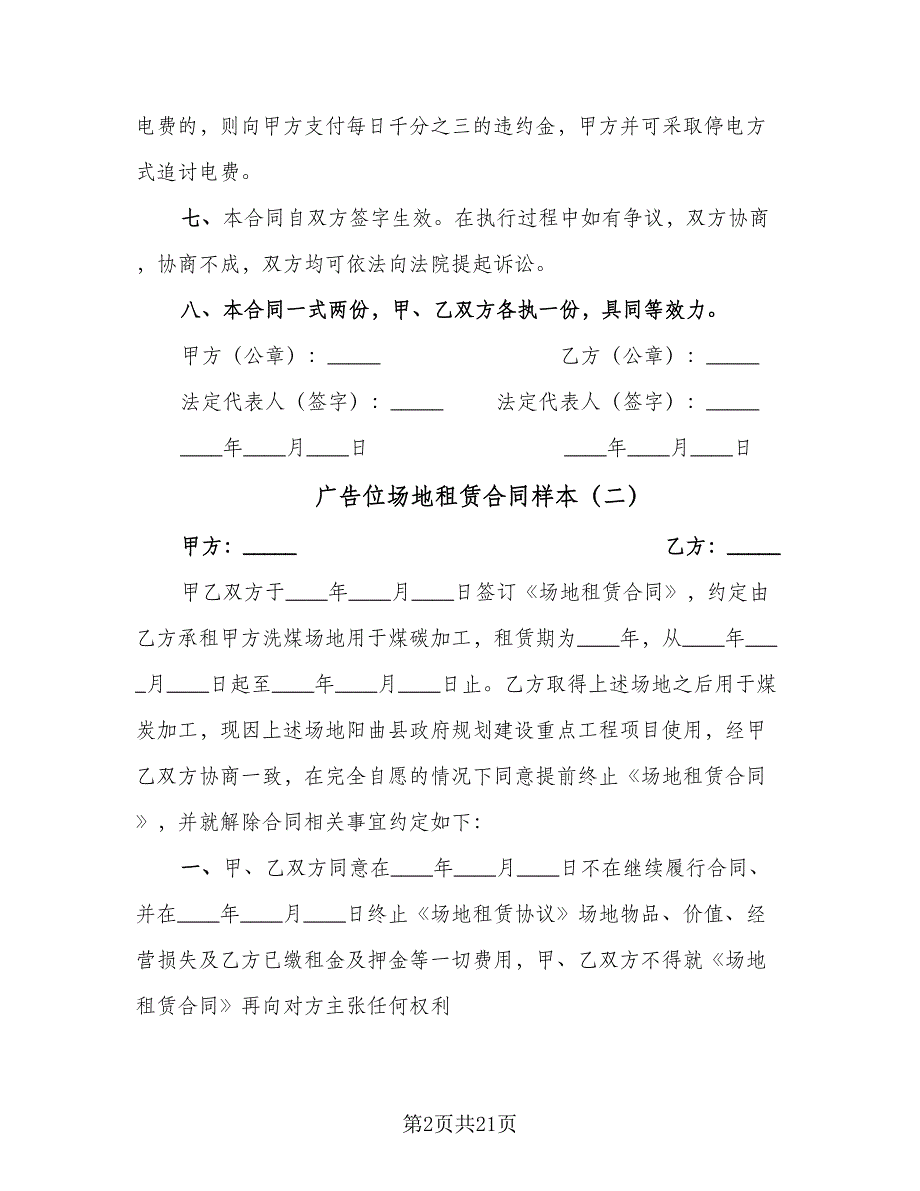 电费的，则向甲方支付每日千分之三的违约金，甲方并可采取停电方
式追讨电费。
七、本合同自双方签字生效。在执行过程中如有争议，双方协商
，协商不成，双方均可依法向法院提起诉讼。
八、本合同一式两份，甲、乙双方各执一份，具同等效力。
甲方（公章）：_____ 乙方（公章）：_____
法定代表人（签字）：_____ 法定代表人（签字）：_____
____年____月____日 ____年____月____日
广告位场地租赁合同样本（二）
甲方：_____ 乙方：_____
甲乙双方于____年____月____日签订《场地租赁合同》，约定由
乙方承租甲方洗煤场地用于煤碳加工，租赁期为____年，从____年___
_月____日起至____年____月____日止。乙方取得上述场地之后用于煤
炭加工，现因上述场地阳曲县政府规划建设重点工程项目使用，经甲
乙双方协商一致，在完全自愿的情况下同意提前终止《场地租赁合同
》，并就解除合同相关事宜约定如下：
一、甲、乙双方同意在____年____月____日不在继续履行合同、
并在____年____月____日终止《场地租赁协议》场地物品、价值、经
营损失及乙方已缴租金及押金等一切费用，甲、乙双方不得就《场地
租赁合同》再向对方主张任何权利
第2页共21页